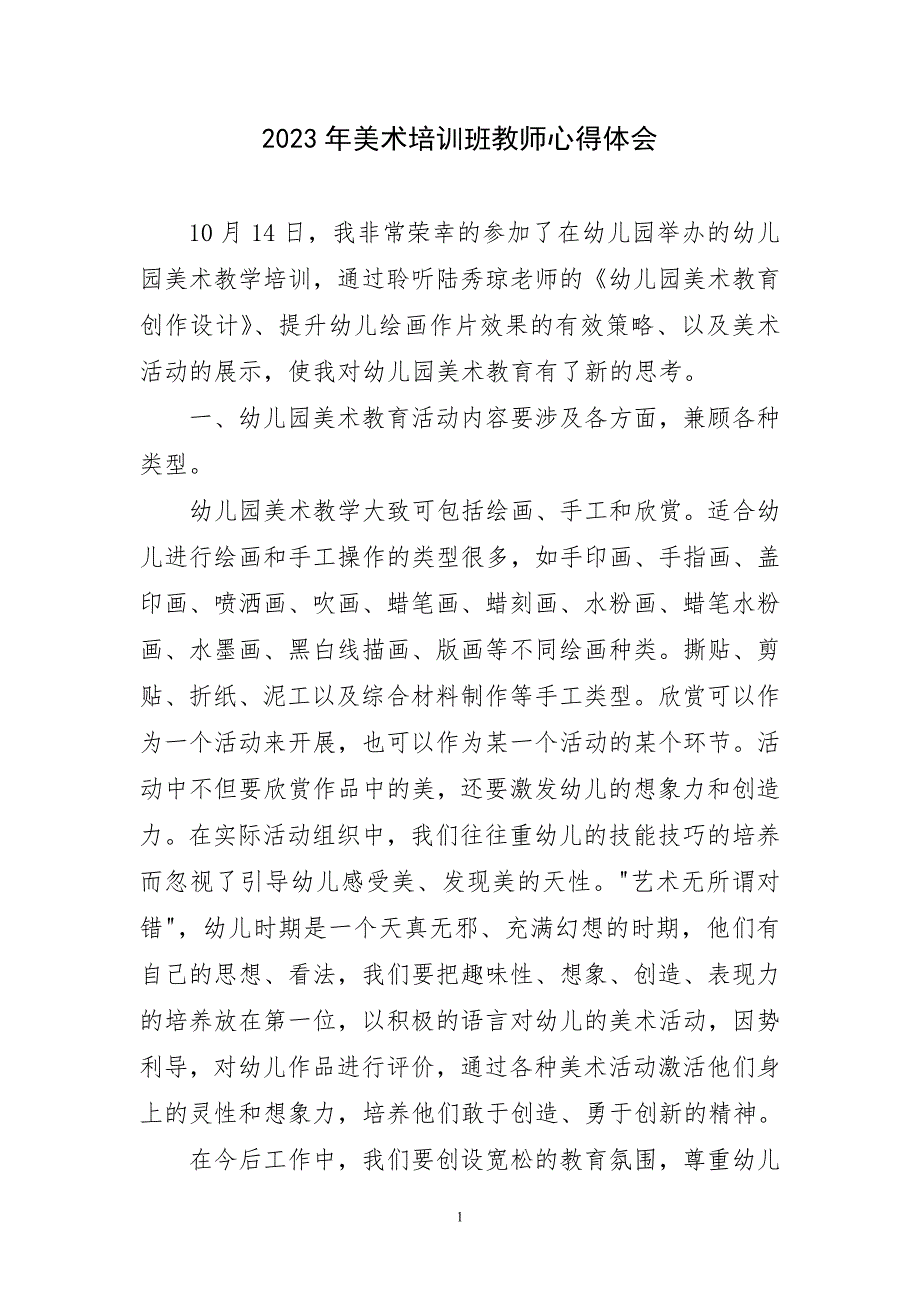 2023 年美术培训班教师心得体会
10 月 14 日，我非常荣幸的参加了在幼儿园举办的幼儿
园美术教学培训，通过聆听陆秀琼老师的《幼儿园美术教育
创作设计》、提升幼儿绘画作片效果的有效策略、以及美术
活动的展示，使我对幼儿园美术教育有了新的思考。
一、幼儿园美术教育活动内容要涉及各方面，兼顾各种
类型。
幼儿园美术教学大致可包括绘画、手工和欣赏。适合幼
儿进行绘画和手工操作的类型很多，如手印画、手指画、盖
印画、喷洒画、吹画、蜡笔画、蜡刻画、水粉画、蜡笔水粉
画、水墨画、黑白线描画、版画等不同绘画种类。撕贴、剪
贴、折纸、泥工以及综合材料制作等手工类型。欣赏可以作
为一个活动来开展，也可以作为某一个活动的某个环节。活
动中不但要欣赏作品中的美，还要激发幼儿的想象力和创造
力。在实际活动组织中，我们往往重幼儿的技能技巧的培养
而忽视了引导幼儿感受美、发现美的天性。"艺术无所谓对
错"，幼儿时期是一个天真无邪、充满幻想的时期，他们有
自己的思想、看法，我们要把趣味性、想象、创造、表现力
的培养放在第一位，以积极的语言对幼儿的美术活动，因势
利导，对幼儿作品进行评价，通过各种美术活动激活他们身
上的灵性和想象力，培养他们敢于创造、勇于创新的精神。
在今后工作中，我们要创设宽松的教育氛围，尊重幼儿
1